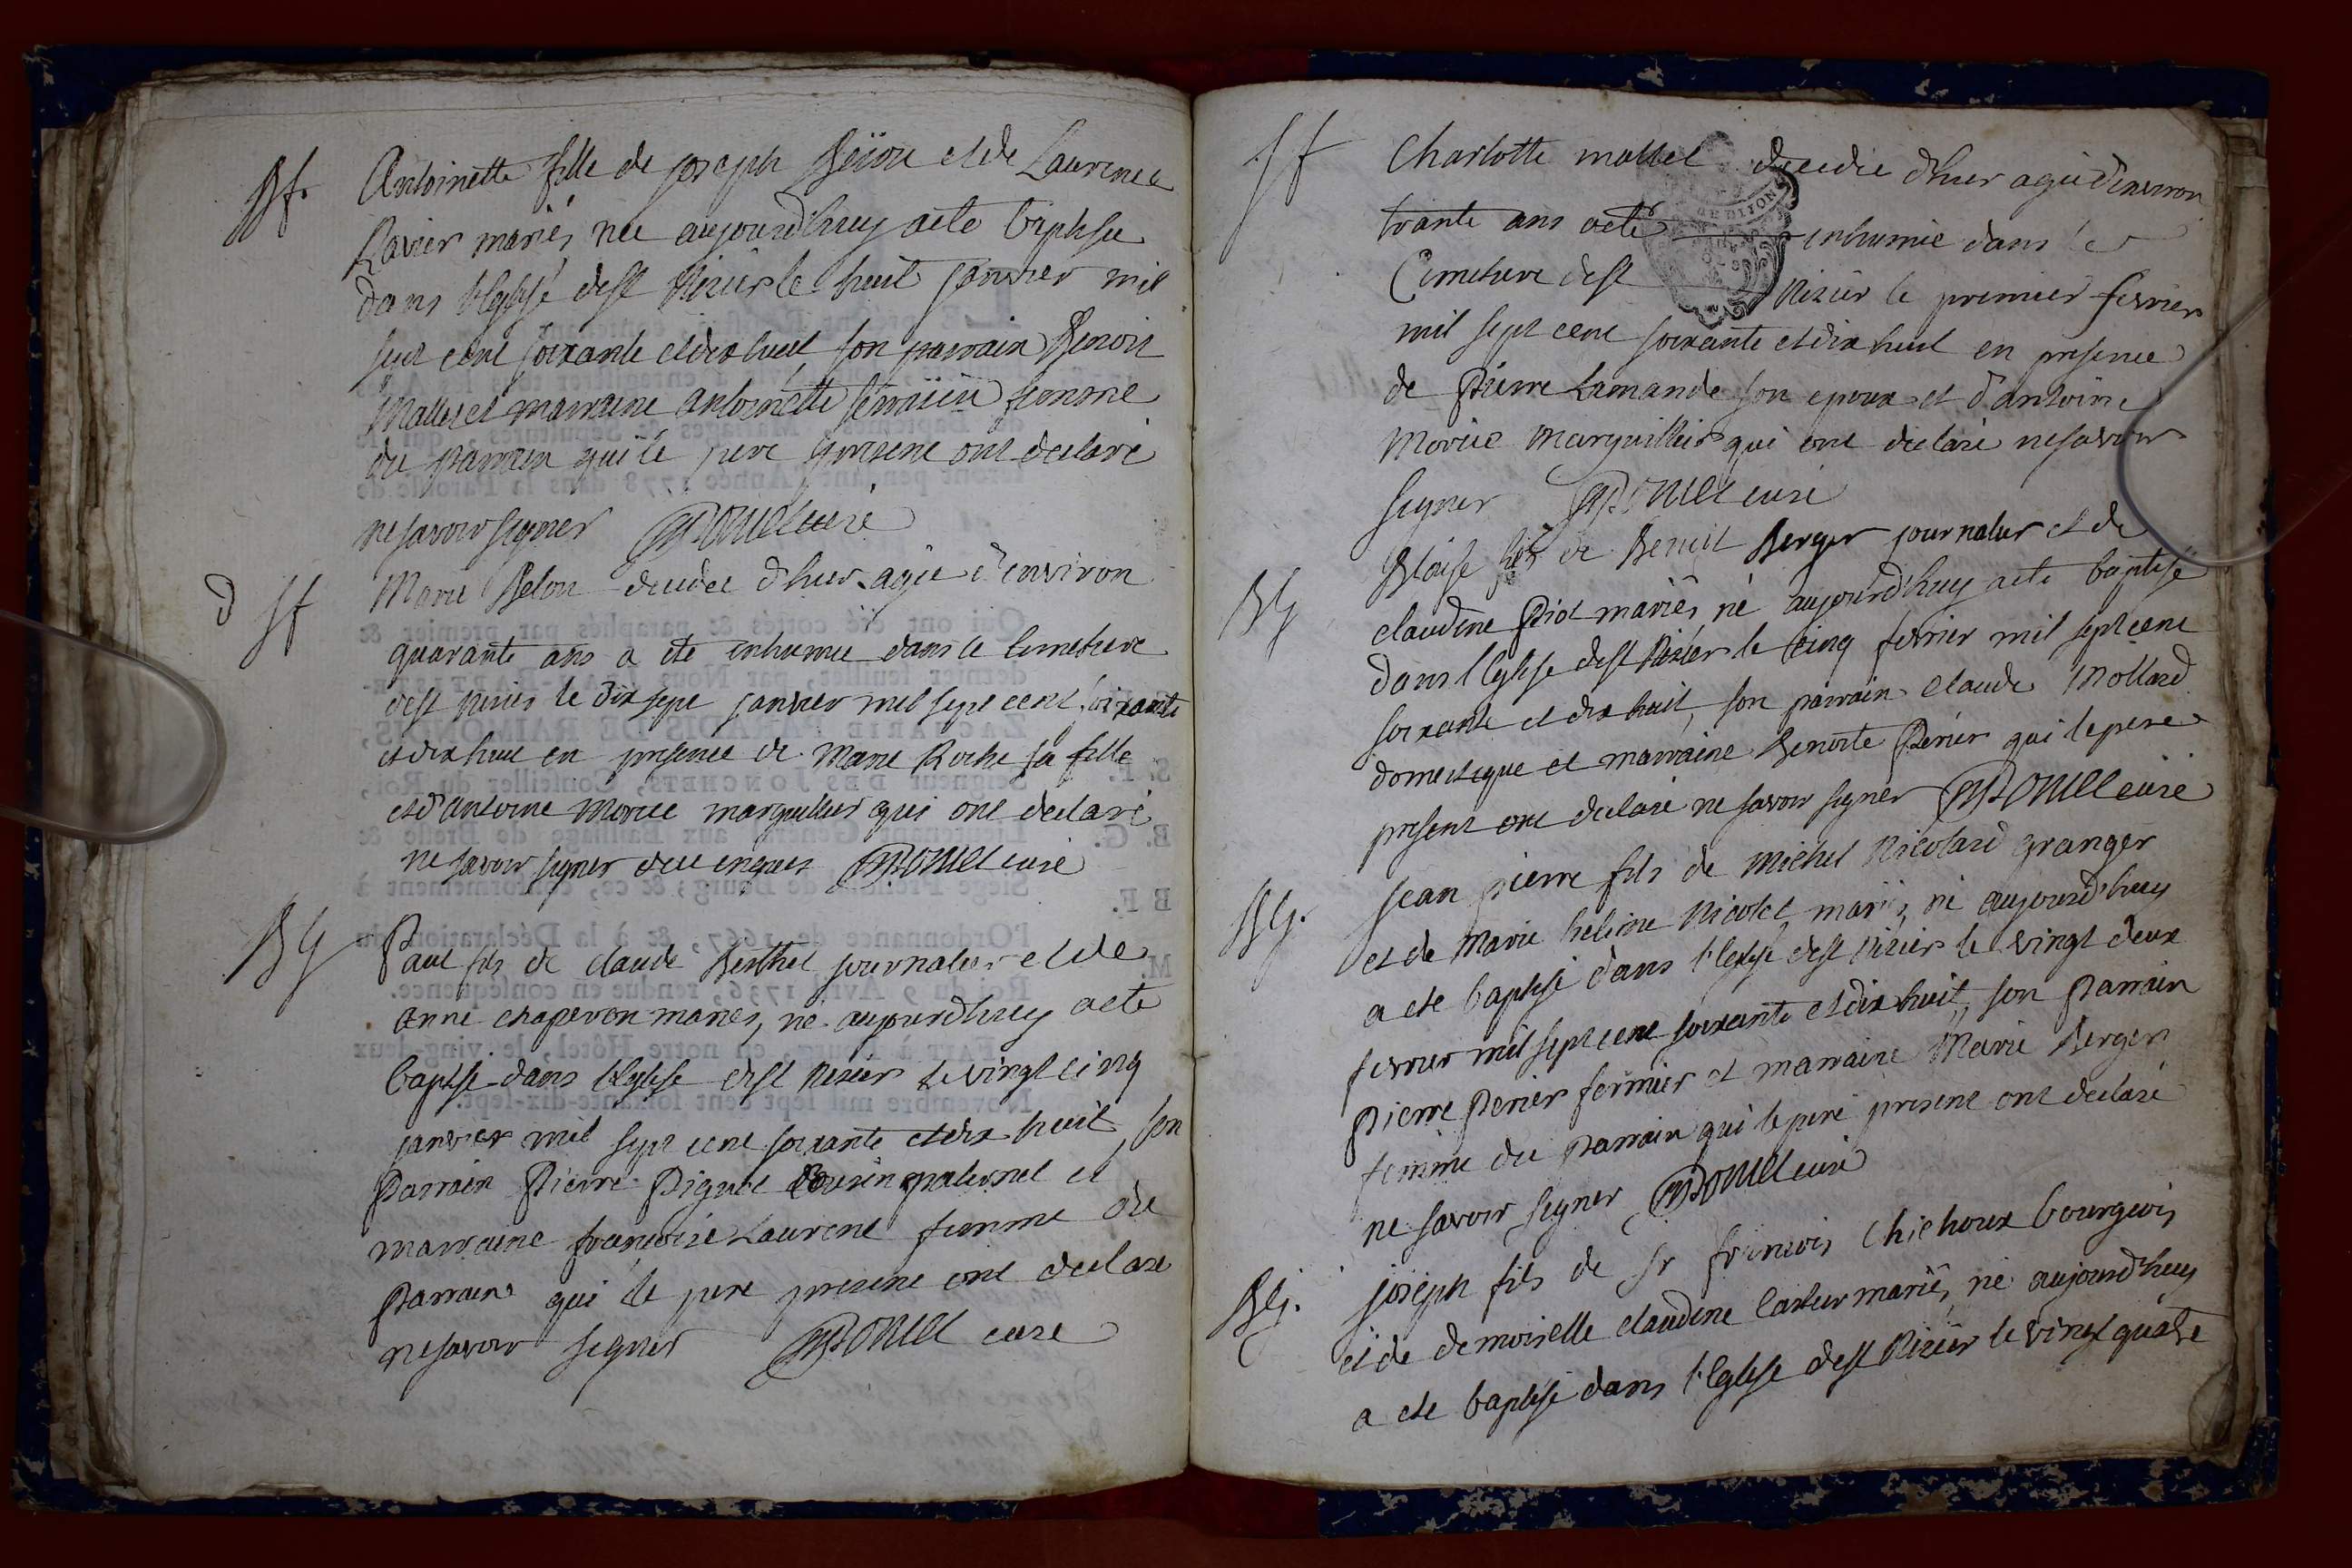 Bf. Antoinette fille de joseph et de Laurence
Ravier mariés, née aujourdhuy a eté baptisee
dans l'Eglise de st Nizier le huit janvier mil
sept cent soixante et dix huit, son parrain Benoit
Mallet et marraine antoinette femme
du parrain qui le pere present ont declaré
ne savoir signer curé
d Sf Marie Belon decedee d'hier agée d'environ
quarante ans a eté inhumée dans le cimetiere
de st nizier le dix sept janvier mil sept cent soixante
et dix huit en presence de Marie Roche sa fille
et d'antoine Morice marguillier qui ont declaré
ne savoir signer de ce enquis curé
BG Paul fils de claude Berthet journalier et de
anne chaperon mariés, né aujourdhuy a eté
baptisé dans l'Eglise de st nizier le vingt cinq
janvier mil sept cent soixante et dix huit, son
parrain Pierre Piguet cousin paternel et
marraine francoise Laurent femme du
parrain qui le pere present ont declaré
ne savoir signer curé
Sf Charlotte mallet decedée d'hier agée d'environ
trante ans a eté inhumée dans le
Cimetiere de st Nizier le premier fevrier
mil sept cent soixante et dix huit en presence
de Pierre Lamande son epoux et d'antoine
Morice marguillier qui ont declaré ne savoir
signer curé
BG Blaise fils de Benoit Berger journalier et de
claudine Piot mariés, né aujourdhuy a eté baptisé
dans l'Eglise de st Nizier le cinq fevrier mil sept cent
soixante et dix huit, son parrain claude Mollard
domestique et marraine Benoite Perier qui le pere
present ont declaré ne savoir signer curé
BG. jean pierre fils de michel Nicolard granger
et de marie helene Nicolet, mariés, né aujourdhuy
a eté baptisé dans l'Eglise de st nizier le vingt deux
fevrier mil sept cent soixante et dix huit, son parrain
pierre perier fermier et marraine Marie Berger
femme du parrain qui le pere present ont declaré
ne savoir signer curé
BG. joseph fils de Sr francois Chichoux bourgeois
et de demoiselle claudine mariés, né aujourdhuy
a eté baptisé dans l'Eglise de st Nizier le vingt quatre